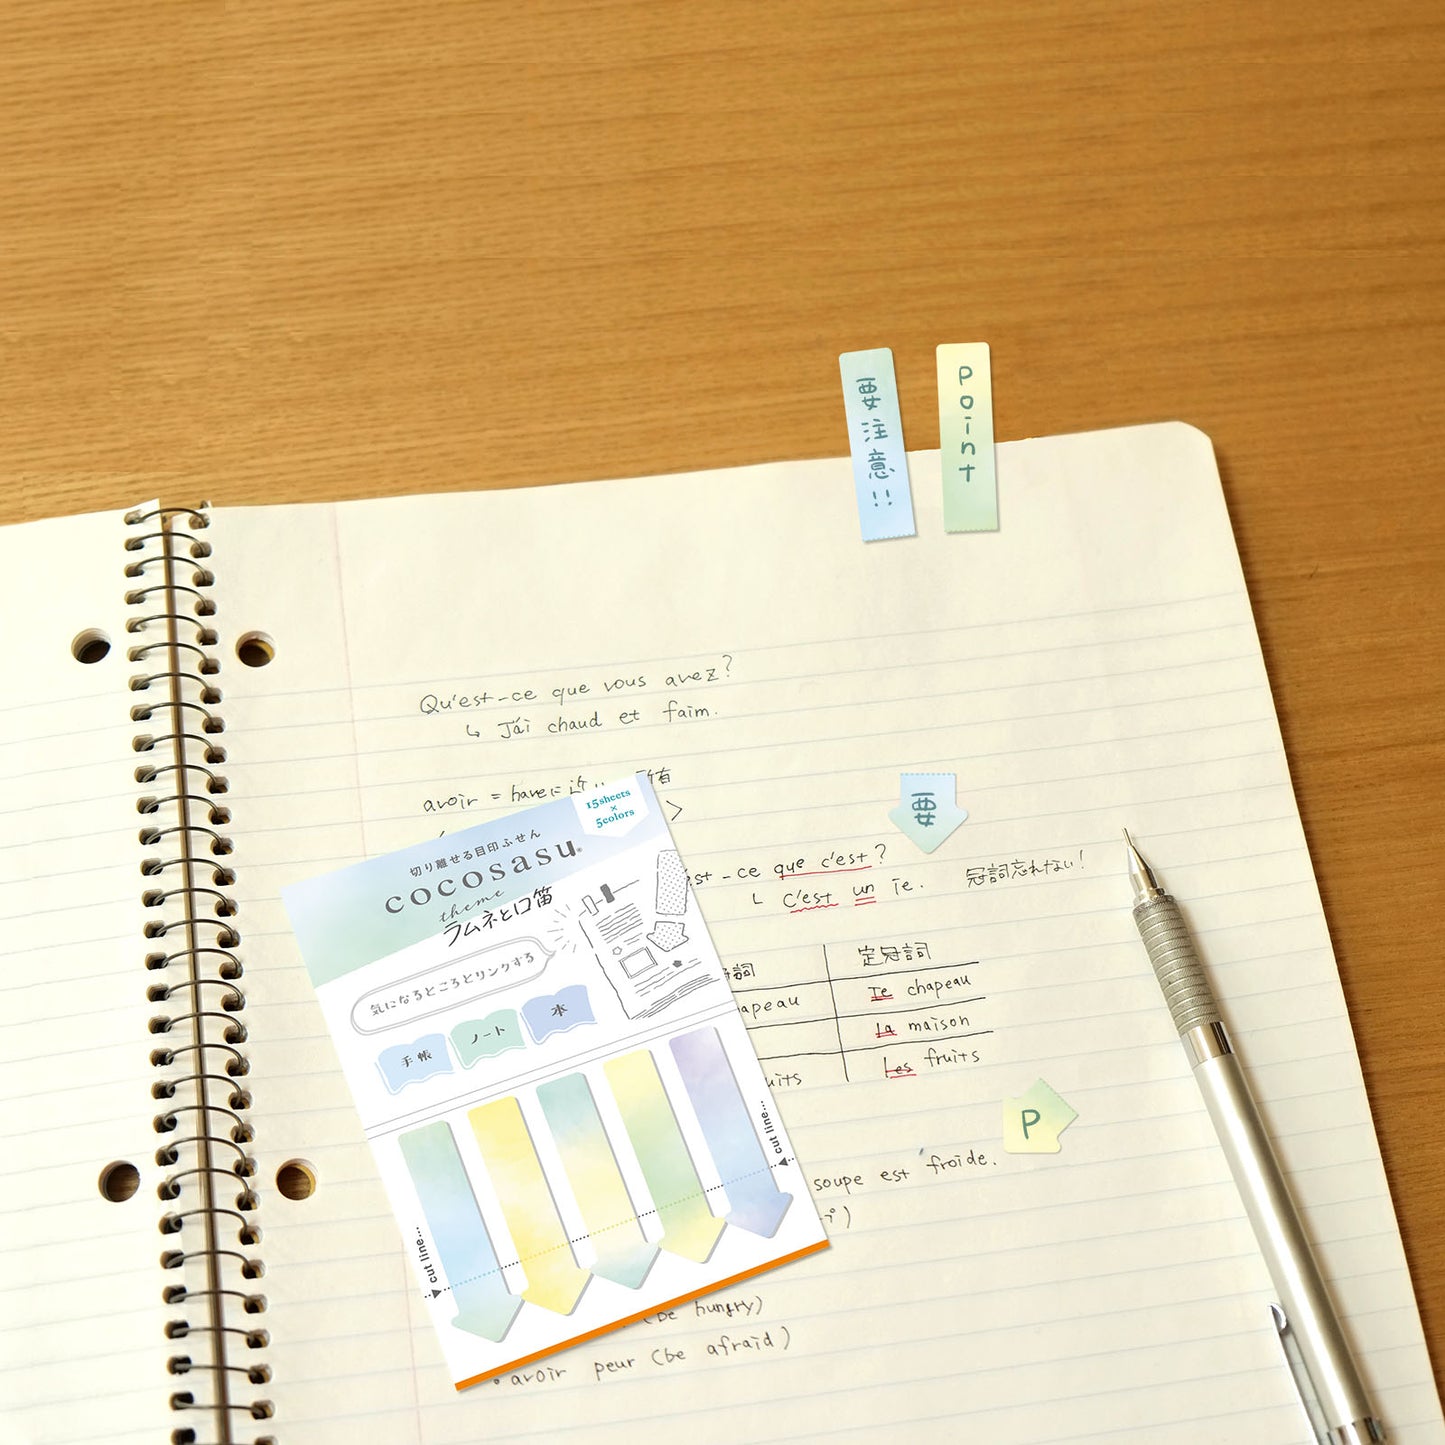 要注意!!
Point
Qu'est-ce que vous avez?
↳ J'ai chaud et faim.
avoir = haveに近い 所有
>
要
est-ce que c'est?
└ c'est un ie.
冠詞忘れない!
冠詞 定冠詞
hapeau Te chapeau
la maison
uits Les fruits
P
soupe est froide.
(be hungry)
• avoir peur (be afraid)
15sheets
×
5colors
切り離せる目印ふせん
cocosasu®
theme
ラムネと口笛
気になるところとリンクする
手帳
ノート
本
cut line...
cut line...